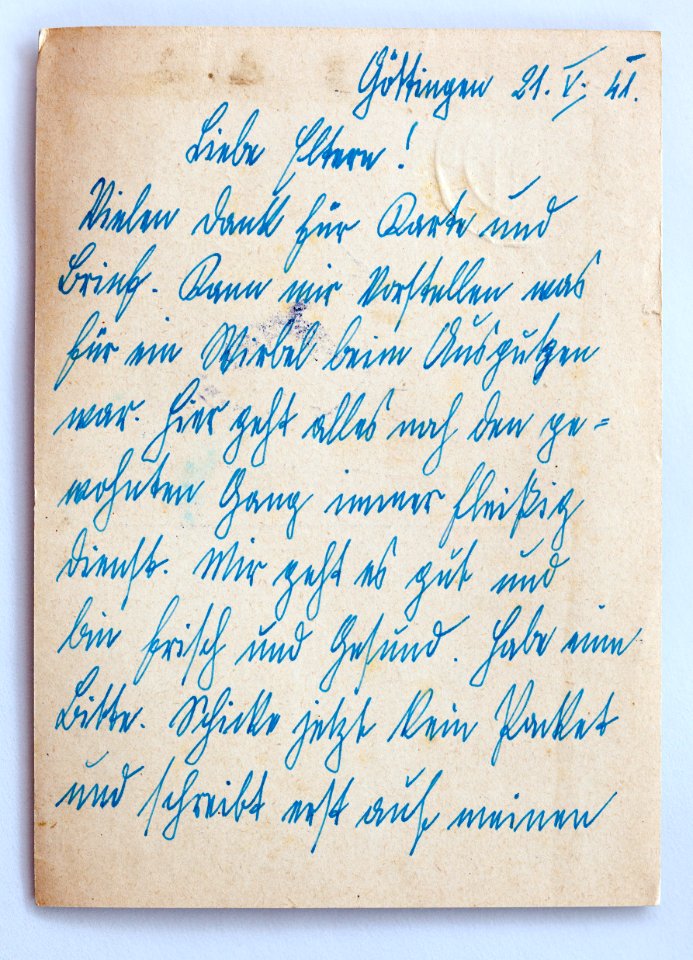 Göttingen 21. V. 41.
Liebe Eltern!
Vielen Dank für Karte und
Brief. Kann mir Vorstellen was
für ein Wirbel beim Ausputzen
war. Hier geht alles nach den ge=
wohnten Gang immer fleißig
Dienst. Mir geht es gut und
bin frisch und Gesund. Habe eine
Bitte. Schickt jetzt kein Packet
und schreibt erst auf meinen